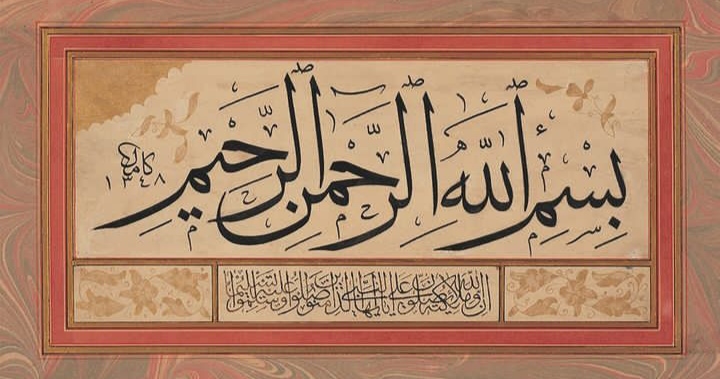 بِسْمِ اللهِ الرَّحْمٰنِ الرَّحِيمِ
كامل
١٣٤٨
ان الله وملائكته يصلون على النبي يا ايها الذين امنوا صلوا عليه وسلموا تسليما